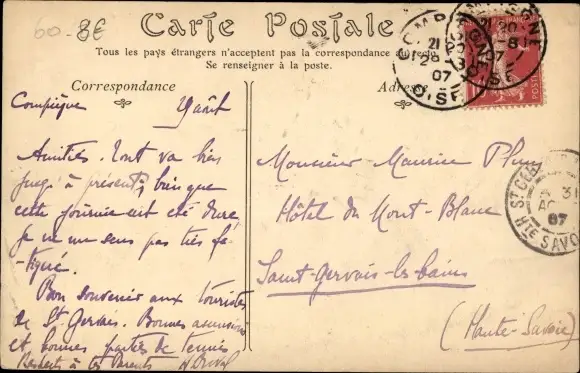 60-8€
Carte Postale
Tous les pays étrangers n'acceptent pas la correspondance au recto
Se renseigner à la poste.
Correspondance
Adresse
COMPIEGNE
21 20
28 -8
07
OISE
Compiègne Août
Amitiés. Tout va bien
jusqu'à présent, bien que
cette journée ait été dure
je ne me sens pas très fa-
tigué.
Bon souvenir aux touristes
de St Gervais. Bonnes ascensions
et bonnes parties de tennis
Respects à tes Parents H.
Monsieur Maurice
Hôtel du Mont-Blanc
Saint-Gervais-les-bains
(Haute-Savoie)
07
HTE SAVOIE